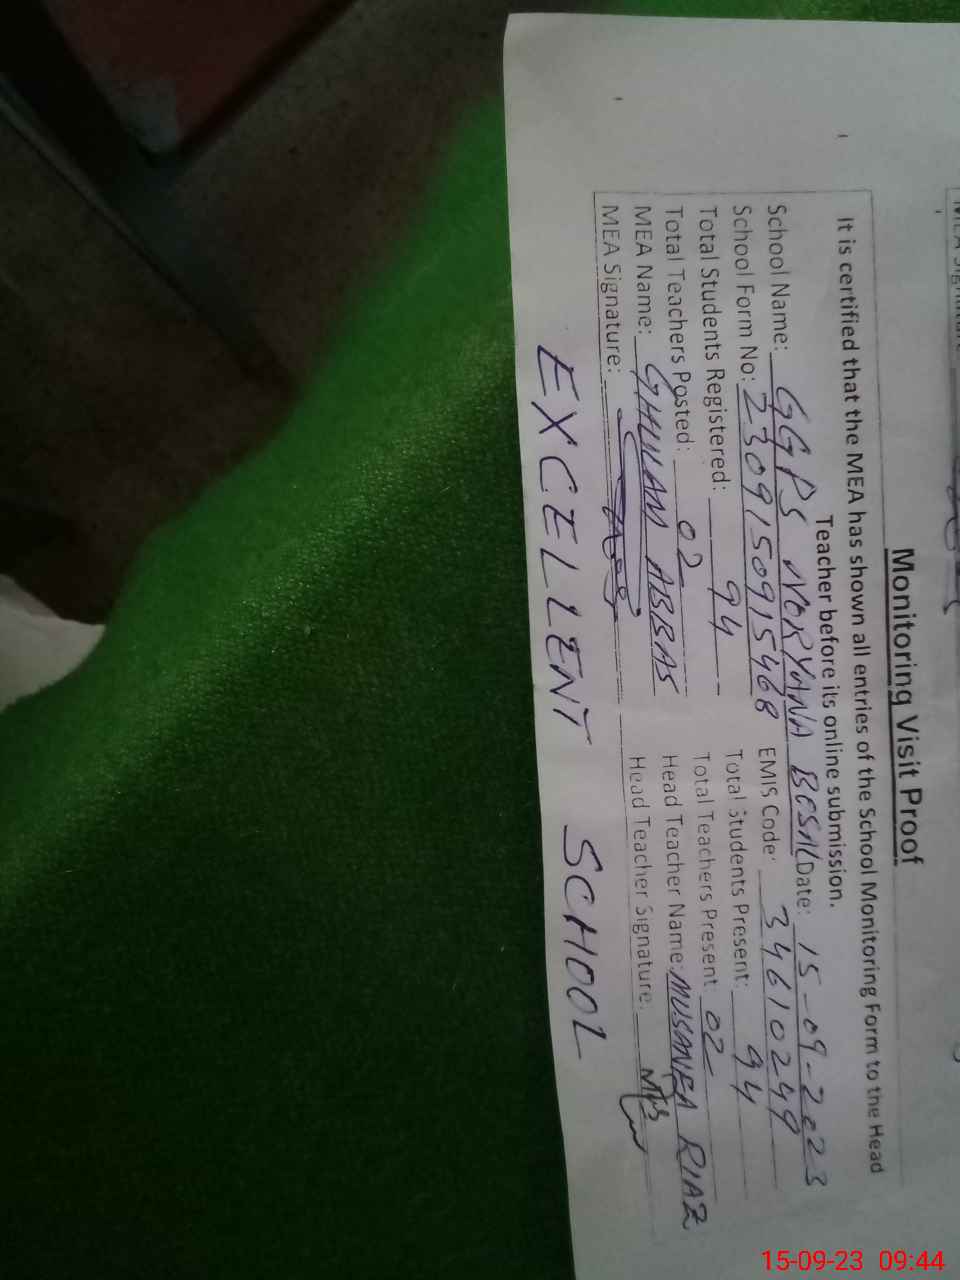 Monitoring Visit Proof
It is certified that the MEA has shown all entries of the School Monitoring Form to the Head
Teacher before its online submission.
School Name: GGPS NORYANA BOSAL Date: 15-09-2023
School Form No: 2309150915468 EMIS Code: 34610249
Total Students Registered: 94 Total Students Present: 94
Total Teachers Posted: 02 Total Teachers Present: 02
MEA Name: GHULAM ABBAS Head Teacher Name: RIAZ
MEA Signature: Head Teacher Signature:
EXCELLENT SCHOOL
15-09-23 09:44